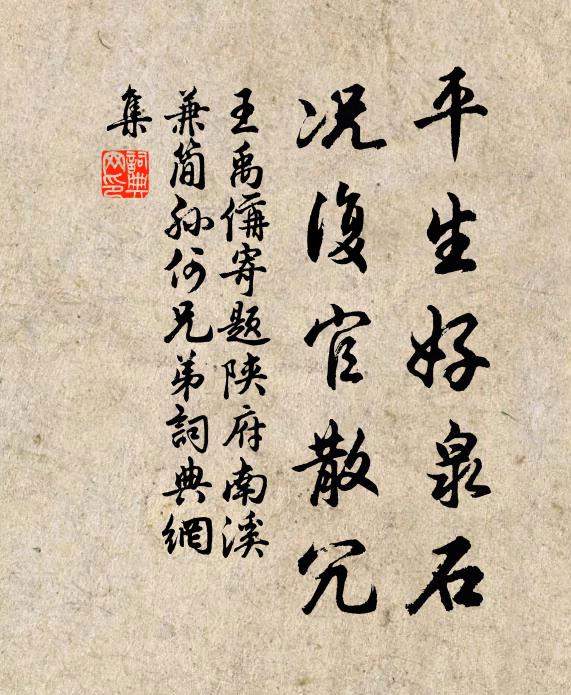 平生好泉石
况復官散冗
王禹偁寄題陝府南溪
兼簡孫何兄弟詞典網
集
詞典網印